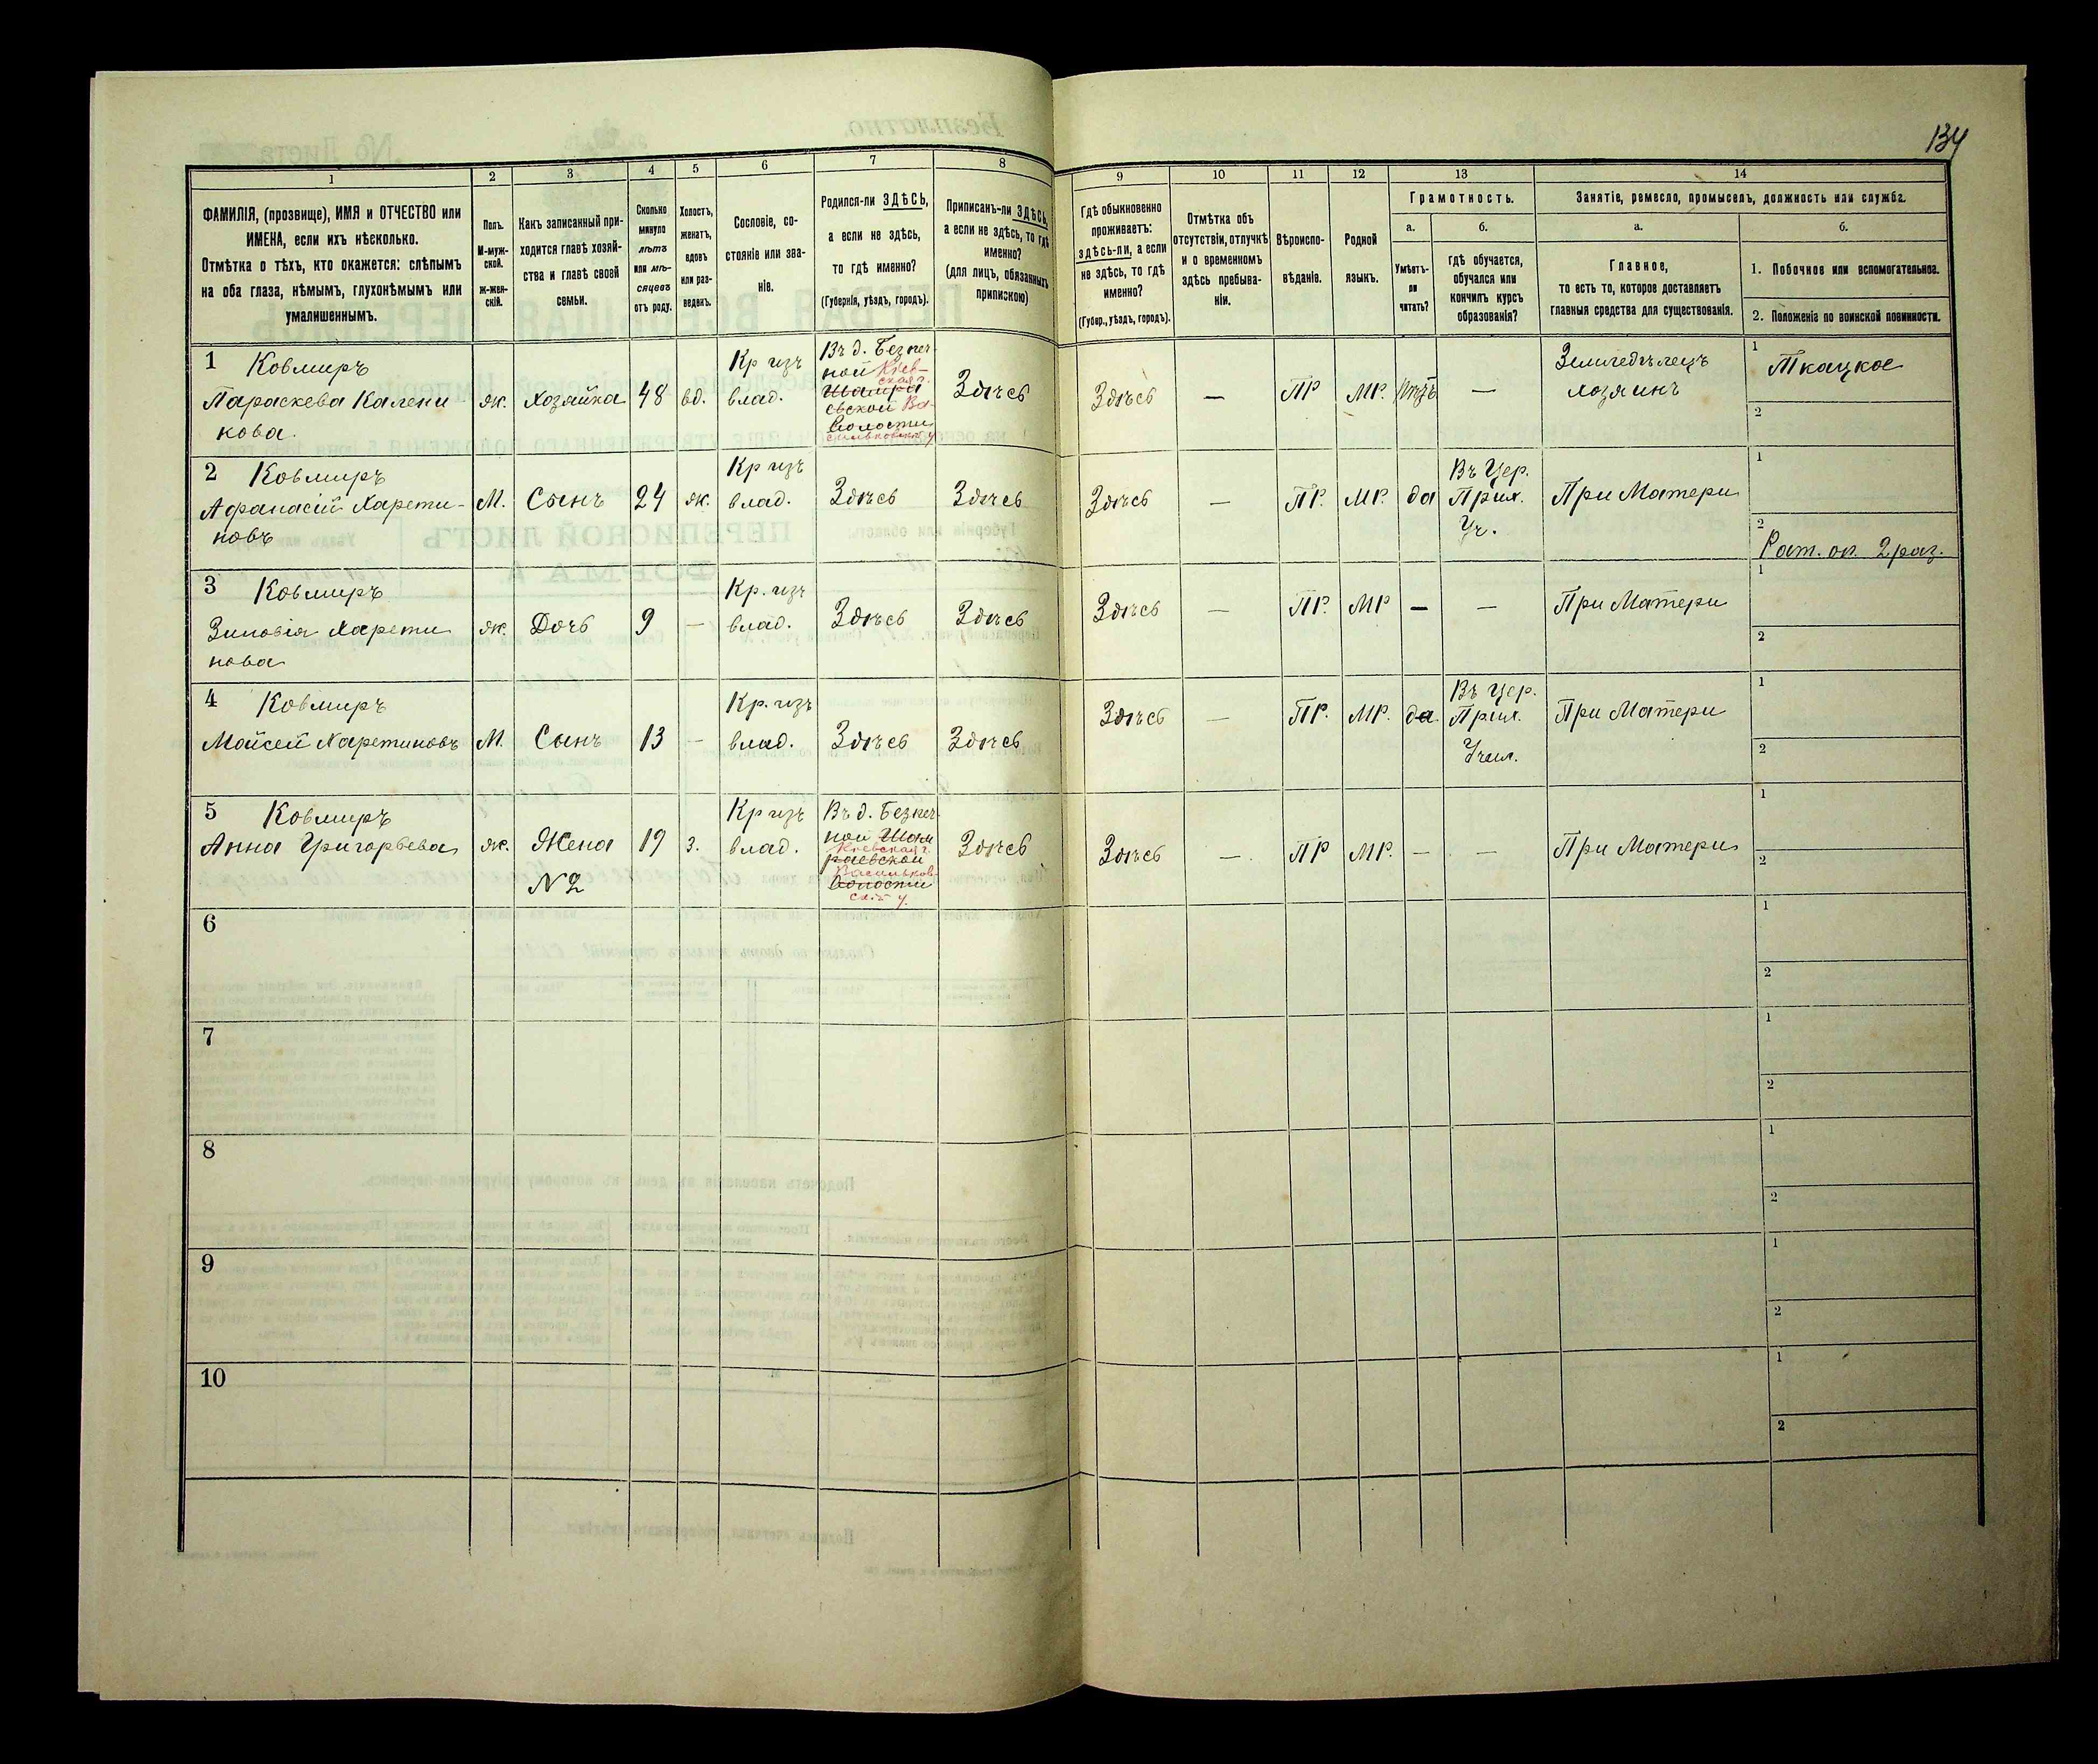 134
1
2
3
4
5
6
7
8
9
10
11
12
13
14
ФАМИЛІЯ, (прозвище), ИМЯ и ОТЧЕСТВО или
ИМЕНА, если ихъ нѣсколько.
Отмѣтка о тѣхъ, кто окажется: слѣпымъ
на оба глаза, нѣмымъ, глухонѣмымъ или
умалишеннымъ.
Полъ.
М-муж-
ской.
Ж-жен-
скій.
Какъ записанный при-
ходится главѣ хозяй-
ства и главѣ своей
семьи.
Сколько
минуло
лѣтъ
или мѣ-
сяцевъ
отъ роду.
Холостъ,
женатъ,
вдовъ
или раз-
веденъ.
Сословіе, со-
стояніе или зва-
ніе.
Родился-ли ЗДѢСЬ,
а если не здѣсь,
то гдѣ именно?
(Губернія, уѣздъ, городъ).
Приписанъ-ли ЗДѢСЬ,
а если не здѣсь, то гдѣ
именно?
(для лицъ, обязанныхъ
припискою)
Гдѣ обыкновенно
проживаетъ:
здѣсь-ли, а если
не здѣсь, то гдѣ
именно?
(Губер., уѣздъ, городъ).
Отмѣтка объ
отсутствіи, отлучкѣ
и о временномъ
здѣсь пребыва-
ніи.
Вѣроиспо-
вѣданіе.
Родной
языкъ.
Грамотность.
а.
Умѣетъ-
ли
читать?
б.
гдѣ обучается,
обучался или
кончилъ курсъ
образованія?
Занятіе, ремесло, промыселъ, должность или служба.
а.
Главное,
то есть то, которое доставляетъ
главныя средства для существованія.
б.
1. Побочное или вспомогательное.
2. Положеніе по воинской повинности.
1 Ковмиръ
Параскева Калени
кова.
ж.
Хозяйка
48
вд.
Кр изъ
влад.
Въ д. Безпеч-
ной Кіев-
ская г.
Шамра
евской Ва-
волости
сильковскій у
Здѣсь
Здѣсь
—
ПР
МР.
нѣтъ
—
Земледѣлецъ
хозяинъ
1
Ткацкое
2
2 Ковмиръ
Афанасій Харети-
новъ
М.
Сынъ
24
ж.
Кр изъ
влад.
Здѣсь
Здѣсь
Здѣсь
—
ПР.
МР.
да
Въ Цер.
Прих.
Уч.
При Матери
1
2
Рат. оп. 2 раз.
3 Ковмиръ
Зиновія Харети
нова
ж.
Дочь
9
—
Кр. изъ
влад.
Здѣсь
Здѣсь
Здѣсь
—
ПР.
МР
—
—
При Матери
1
2
4 Ковмиръ
Мойсей Харетиновъ
М.
Сынъ
13
—
Кр. изъ
влад.
Здѣсь
Здѣсь
Здѣсь
—
ПР.
МР.
да.
Въ Цер.
Прих.
Учил.
При Матери
1
2
5 Ковмиръ
Анна Григорьева
ж.
Жена
N2
19
з.
Кр изъ
влад.
Въ д. Безпеч-
ной Шам
Кіевская г.
раевской
Васильков-
волости
скій у.
Здѣсь
Здѣсь
—
ПР
МР.
—
—
При Матери
1
2
6
1
2
7
1
2
8
1
2
9
1
2
10
1
2